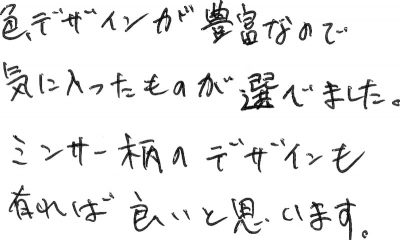 色、デザインが豊富なので
気に入ったものが選べました。
ミンサー柄のデザインも
有れば良いと思います。